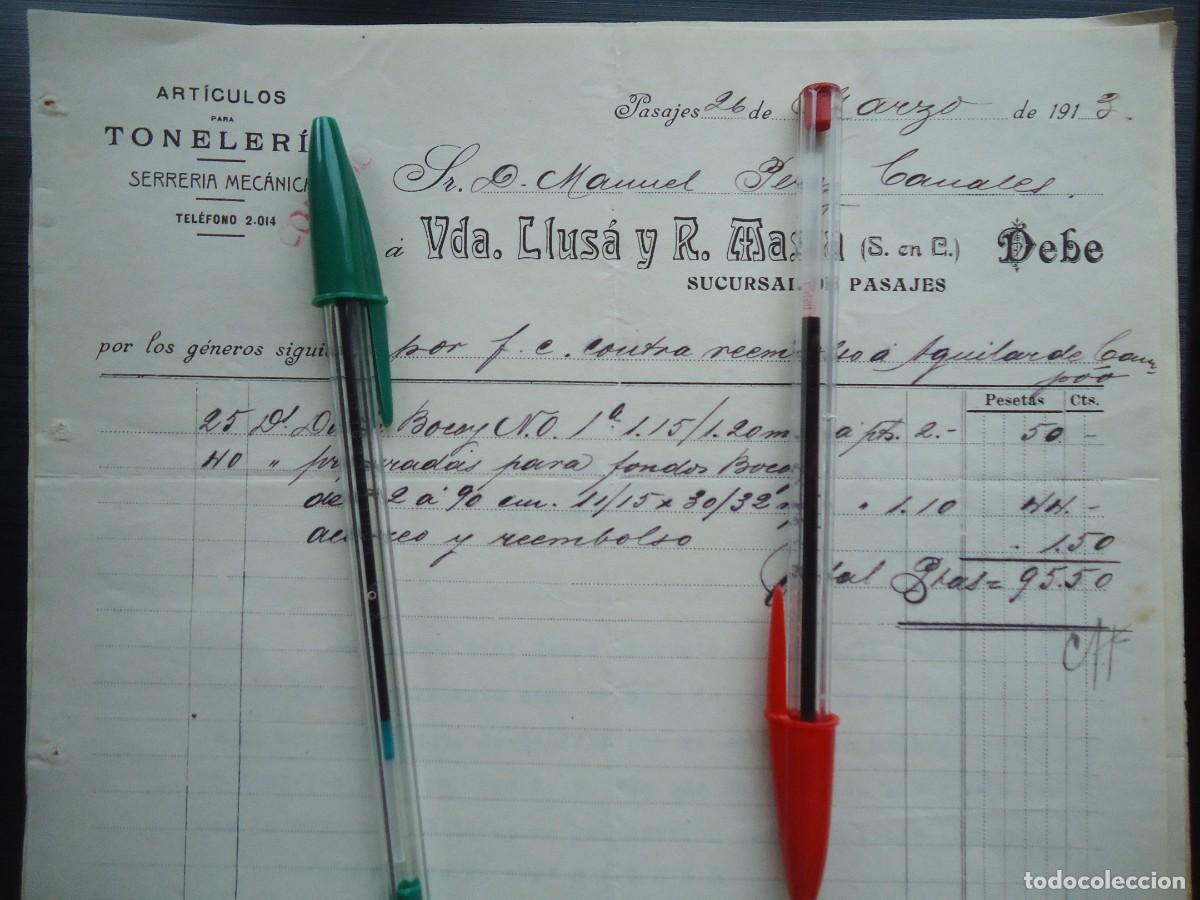 ARTÍCULOS
PARA
TONELERÍ
SERRERIA MECÁNICA
TELÉFONO 2.014
Pasajes 26 de Marzo de 1913.
Sr. D. Manuel Canales
á Vda. Llusá y R. (S. en C.) Debe
SUCURSAL DE PASAJES
por los géneros por f. c. contra reembolso á Aguilar de Cam-
póo
Pesetas Cts.
25 Bocoy N.O. 1ª 1.15/1.20 á pts. 2.- 50 -
40 " para fondos
de á 90 cm. 11/15 x 30/32 " 1.10 44.-
acarreo y reembolso 1.50
Total Ptas = 95.50
todocoleccion